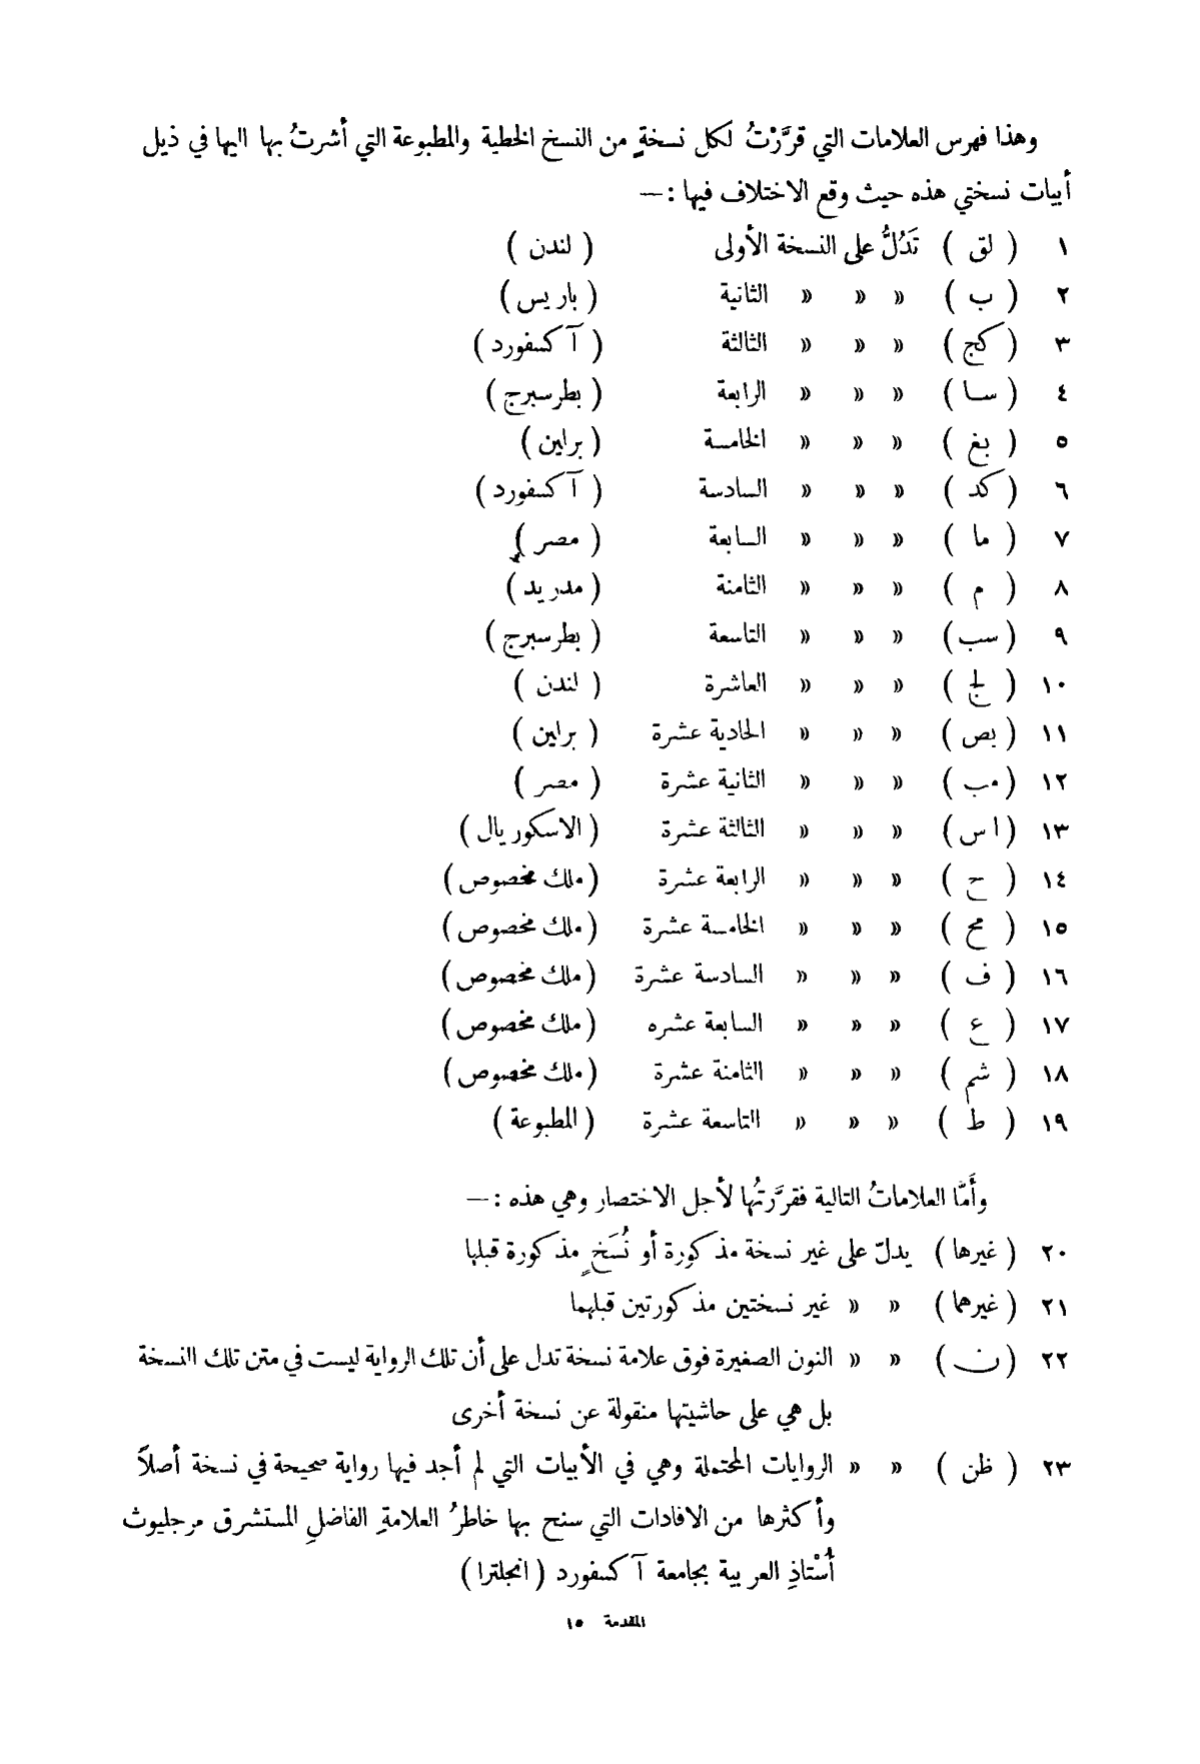 وهذا فهرس العلامات التي قرَّرْتُ لكل نسخةٍ من النسخ الخطية والمطبوعة التي أشرتُ بها اليها في ذيل
أبيات نسختي هذه حيث وقع الاختلاف فيها :—
١ ( لق ) تَدُلُّ على النسخة الأولى ( لندن )
٢ ( ب ) » » » الثانية ( باريس )
٣ ( كج ) » » » الثالثة ( آكسفورد )
٤ ( سا ) » » » الرابعة ( بطرسبرج )
٥ ( بغ ) » » » الخامسة ( براين )
٦ ( كد ) » » » السادسة ( آكسفورد )
٧ ( ما ) » » » السابعة ( مصر )
٨ ( م ) » » » الثامنة ( مدريد )
٩ ( سب ) » » » التاسعة ( بطرسبرج )
١٠ ( لج ) » » » العاشرة ( لندن )
١١ ( بص ) » » » الحادية عشرة ( براين )
١٢ ( مب ) » » » الثانية عشرة ( مصر )
١٣ ( اس ) » » » الثالثة عشرة ( الاسكوريال )
١٤ ( ح ) » » » الرابعة عشرة ( ملك مخصوص )
١٥ ( مح ) » » » الخامسة عشرة ( ملك مخصوص )
١٦ ( ف ) » » » السادسة عشرة ( ملك مخصوص )
١٧ ( ع ) » » » السابعة عشره ( ملك مخصوص )
١٨ ( شم ) » » » الثامنة عشرة ( ملك مخصوص )
١٩ ( ط ) » » » التاسعة عشرة ( المطبوعة )
وأَمَّا العلاماتُ التالية فقرَّرتُها لأجل الاختصار وهي هذه :—
٢٠ ( غيرها ) يدلّ على غير نسخة مذكورة أو نُسَخٍ مذكورة قبلها
٢١ ( غيرهما ) » » غير نسختين مذكورتين قبلهما
٢٢ ( ن ) » » النون الصغيرة فوق علامة نسخة تدل على أن تلك الرواية ليست في متن تلك النسخة
بل هي على حاشيتها منقولة عن نسخة أخرى
٢٣ ( ظن ) » » الروايات المحتملة وهي في الأبيات التي لم أجد فيها رواية صحيحة في نسخة أصلاً
وأكثرها من الافادات التي سنح بها خاطرُ العلامةِ الفاضلِ المستشرق مرجليوث
أُسْتاذِ العربية بجامعة آكسفورد ( انجلترا )
المقدمة ١٥